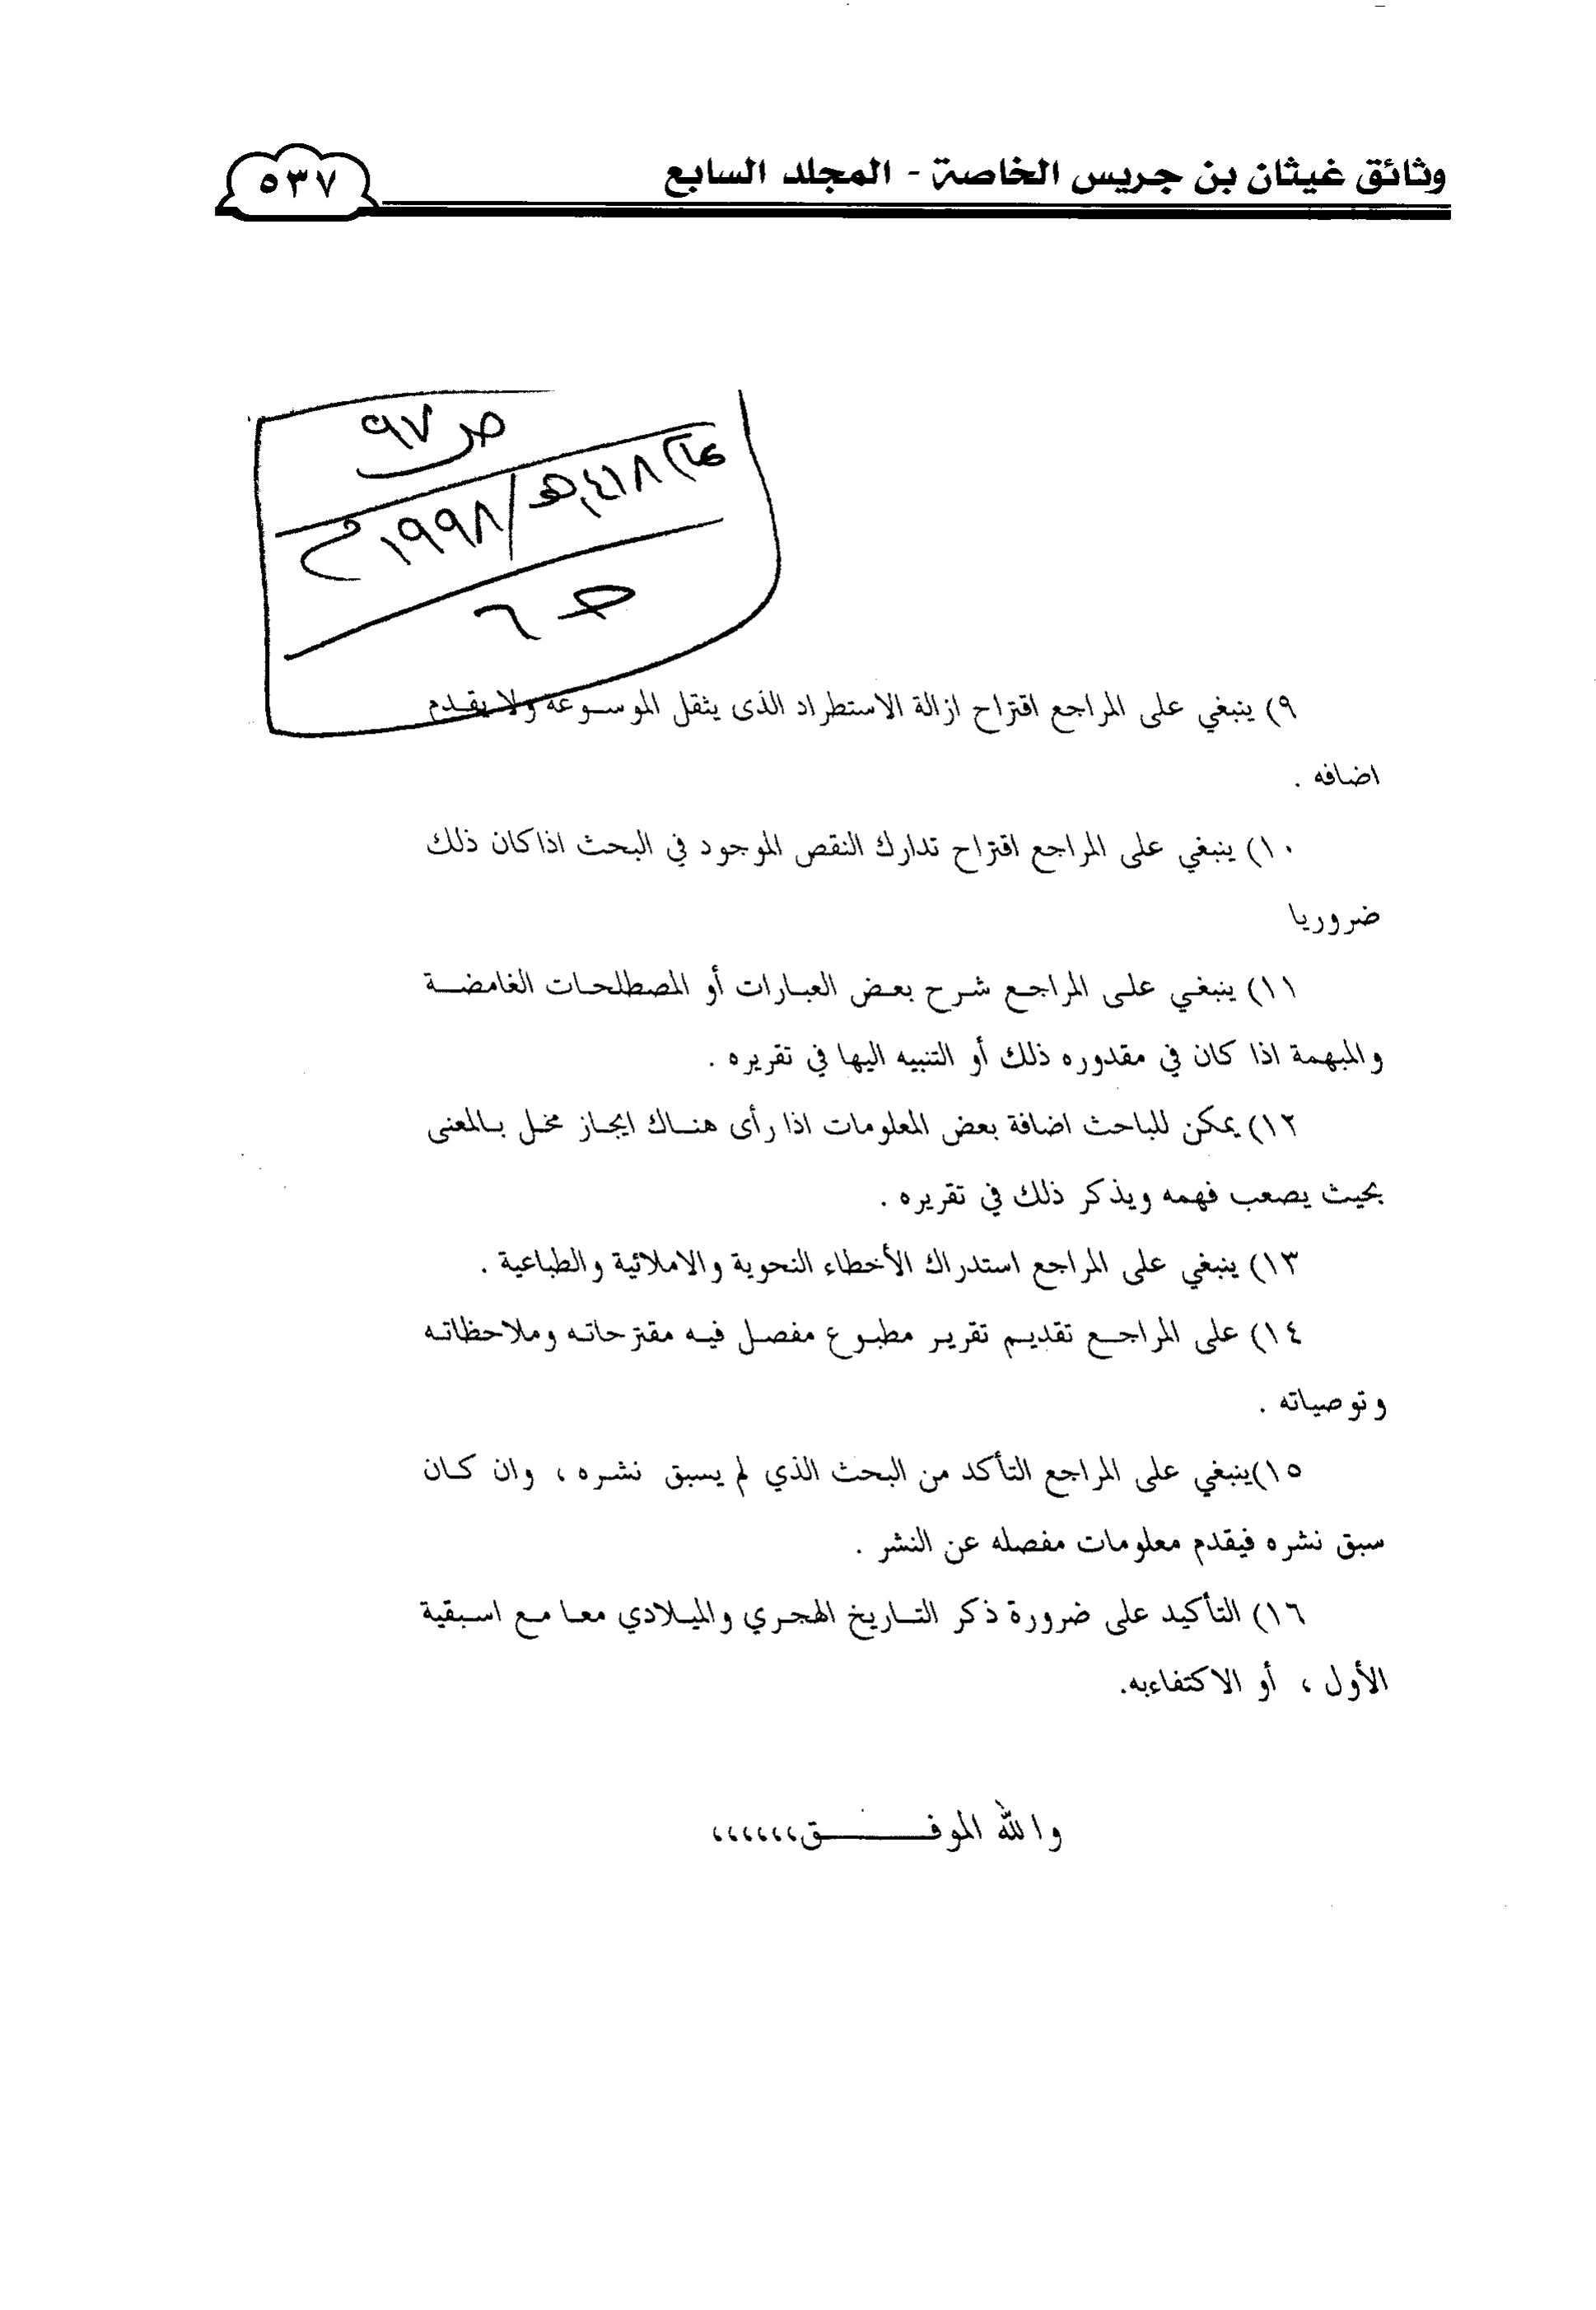 وثائق غيثان بن جريس الخاصة - المجلد السابع
٥٣٧
ص ٩٧
عام ١٤١٨هـ / ١٩٩٨م
حـ ٦
٩) ينبغي على المراجع اقتراح ازالة الاستطراد الذى يثقل الموسوعة ولا يقدم
اضافه .
١٠) ينبغي على المراجع اقتراح تدارك النقص الموجود في البحث اذا كان ذلك
ضروريا
١١) ينبغي على المراجع شرح بعض العبارات أو المصطلحات الغامضة
والمبهمة اذا كان في مقدوره ذلك أو التنبيه اليها في تقريره .
١٢) يمكن للباحث اضافة بعض المعلومات اذا رأى هناك ايجاز مخل بالمعنى
بحيث يصعب فهمه ويذكر ذلك في تقريره .
١٣) ينبغي على المراجع استدراك الأخطاء النحوية والاملائية والطباعية .
١٤) على المراجع تقديم تقرير مطبوع مفصل فيه مقترحاته وملاحظاته
وتوصياته .
١٥)ينبغي على المراجع التأكد من البحث الذي لم يسبق نشره ، وان كان
سبق نشره فيقدم معلومات مفصله عن النشر .
١٦) التأكيد على ضرورة ذكر التاريخ الهجري والميلادي معا مع اسبقية
الأول ، أو الاكتفاءبه.
والله الموفق،،،،،،